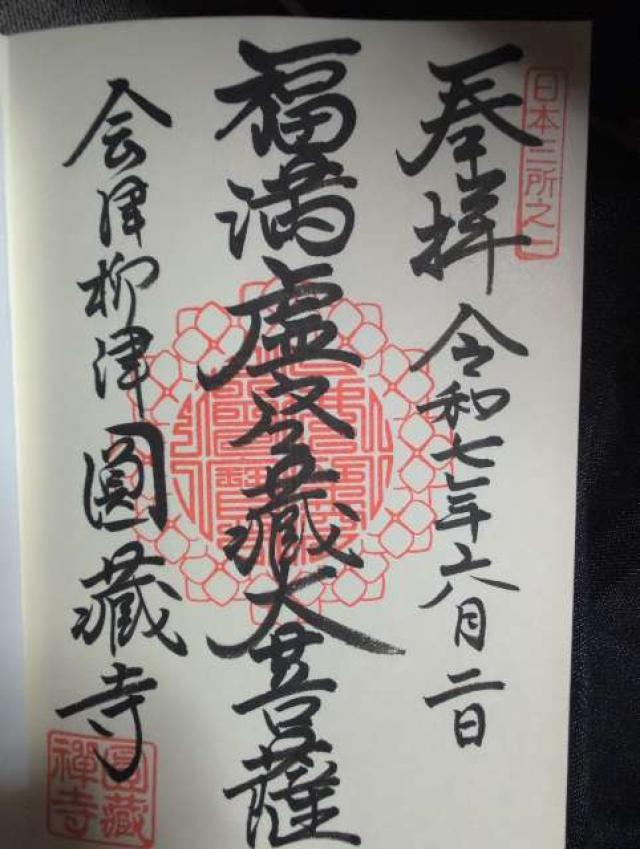 日本三所之一
奉拝 令和七年六月二日
福満虚空蔵大菩薩
会津柳津 圓蔵寺
圓蔵禅寺